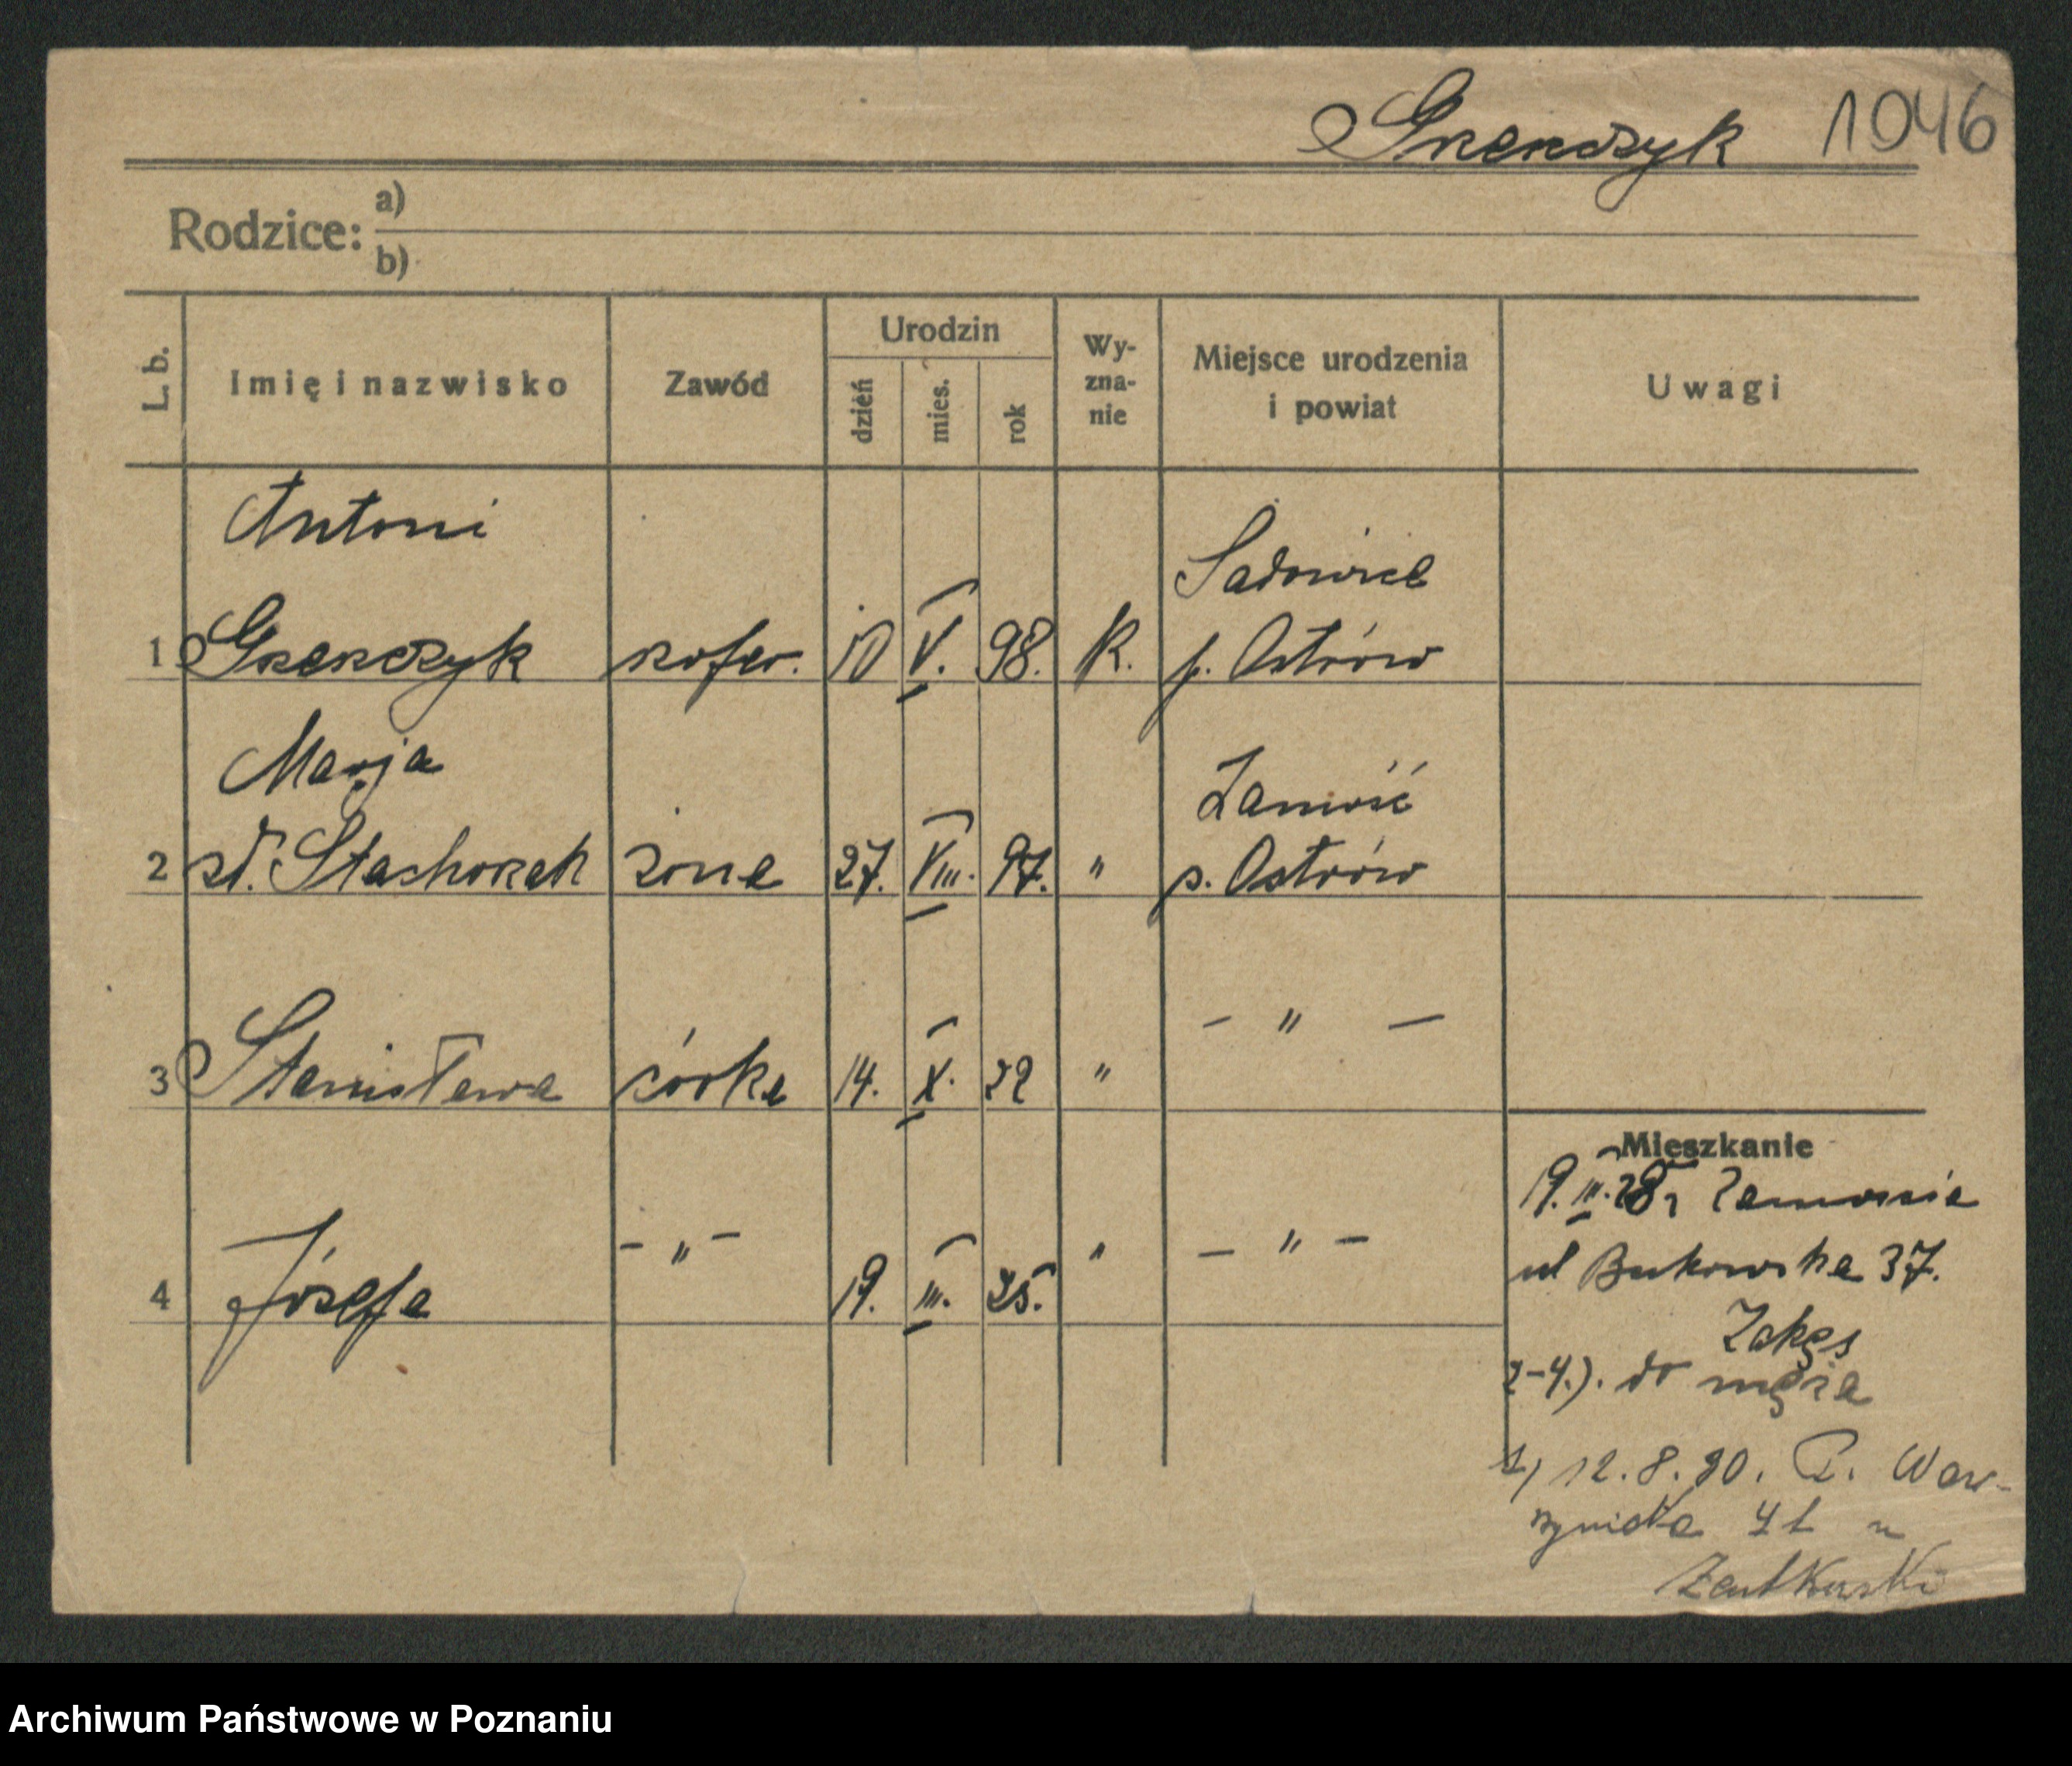 Grzenczyk 1046
Rodzice: a)
b)
L. b.
Imię i nazwisko
Zawód
Urodzin
dzień
mies.
rok
Wy-
zna-
nie
Miejsce urodzenia
i powiat
Uwagi
Antoni
Sadowie
1 Grzenczyk szofer. 10 V. 98. K. p. Ostrów
Marja
Zamość
2 zd. Stachorzak żona 27. VIII. 97. " p. Ostrów
- " -
3 Stanisława córka 14. X. 22 "
- " - " - " -
4 Józefa 19. III. 25.
Mieszkanie
19. III. 28 r Zamość
ul Bukowska 37.
Zakęs
2-4.). do męża
1) 12.8.30. P. Waw-
rzyniaka 41 u